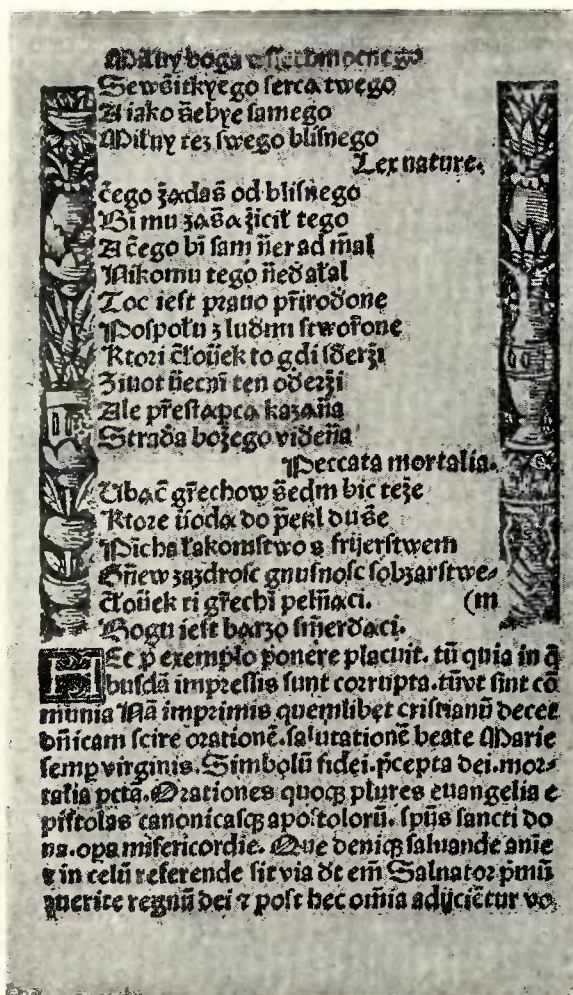 Miłuy boga wsiechmocnego
Sewsitkyego serca twego
A iako ñebye samego
Miłuy tez swego bliſnego
Lex nature.
c̃ego żadas̃ od bliſñego
Bi mu zas̃a żicił tego
A c̃ego bi ſam ñerad m̃al
Nikomu tego ñedałal
Toc ieſt prawo p̃rirodone
Poſpołu z ludmi ſtwor̃one
Ktori c̃łoũek to gdi ſderżi
Ziuot ũecni ten oderżi
Ale p̃reſtapca kazaña
Strada bożego videña
Peccata mortalia.
Ubac̃ gr̃echow s̃edm bic teże
Ktore ũoda do p̃ekl dus̃e
Picha łakomſtwo s frijerſtwem
Gñew zazdroſc gnuſnoſc ſobzarſtwe⸗
c̃łoũek ri gr̃echi pelñaci. (m
Bogu ieſt barzo ſm̃erdaci.
Hec p̱ exemplo ponere placuit. tũ quia in q̃
buſdã impreſſis ſunt corrupta. tũvt ſint cõ
munia Nã imprimis quemlibet criſtianũ decet
dñicam ſcire orationẽ. ſalutationẽ beate Marie
ſemp̱ virginis. Simbolũ fidei. p̃cepta dei. mor⸗
talia pctã. Orationes quoqꝫ plures euangelia e
piſtolas canonicaſqꝫ apoſtolorũ. ſpũs ſancti do
na. opa miſericordie. Que deniqꝫ ſaluande anĩe
⁊ in celũ referende ſit via dt em̃ Saluator p̃mũ
querite regnũ dei ⁊ poſt hec om̃ia adijciẽtur vo